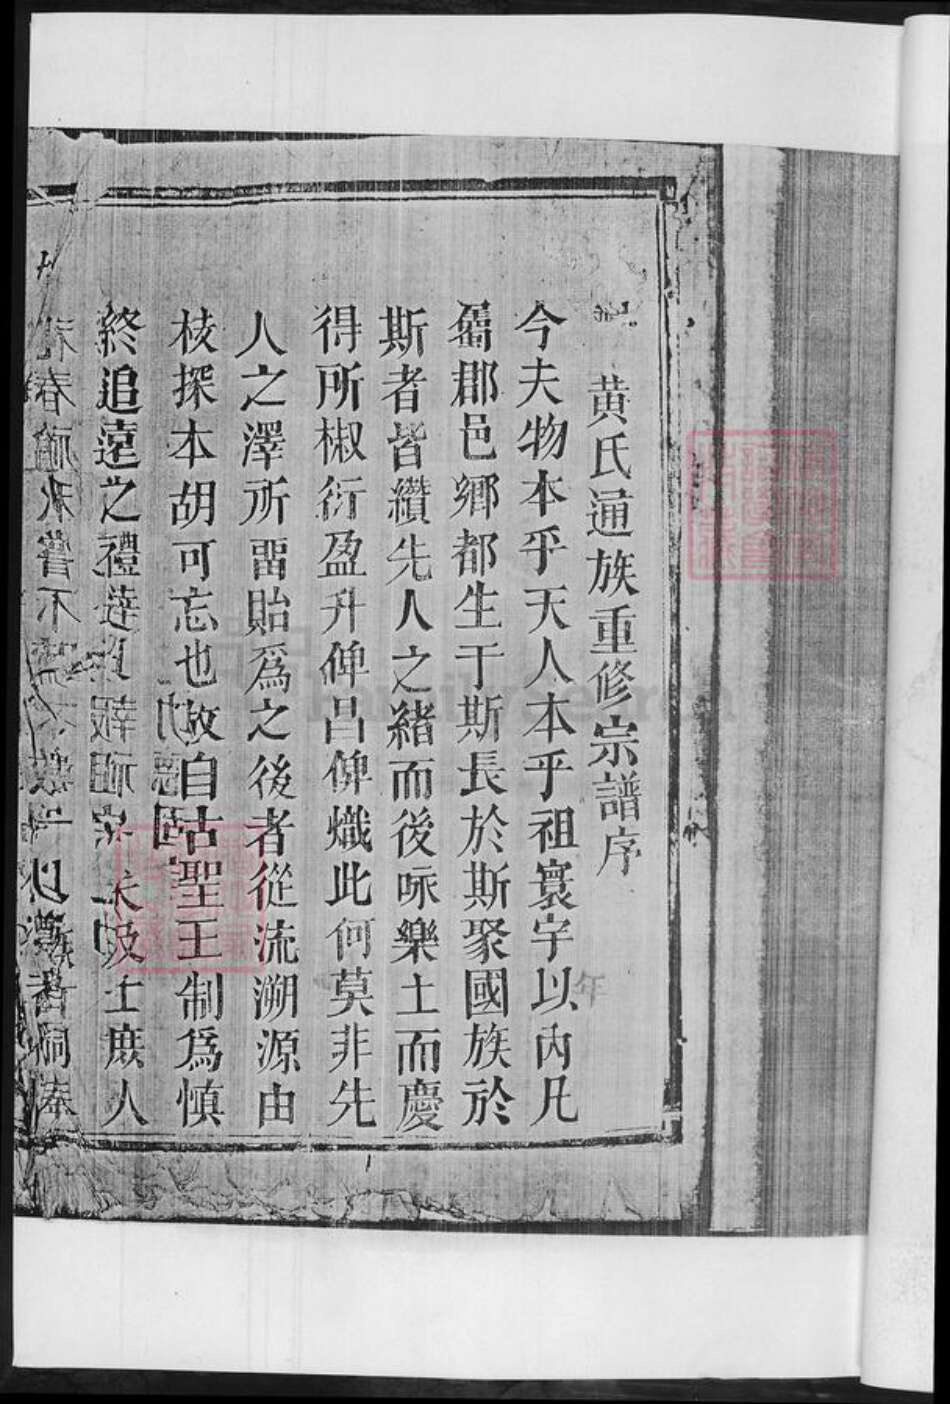 黄氏通族重修宗譜序
今夫物本乎天人本乎祖寰宇以內凡
屬郡邑鄉都生于斯長於斯聚國族於
斯者皆纘先人之緒而後咏樂土而慶
得所椒衍盈升俾昌俾熾此何莫非先
人之澤所畱貽爲之後者從流溯源由
枝探本胡可忘也故自古聖王制爲慎
終追遠之禮達 士庶人
春 嘗不